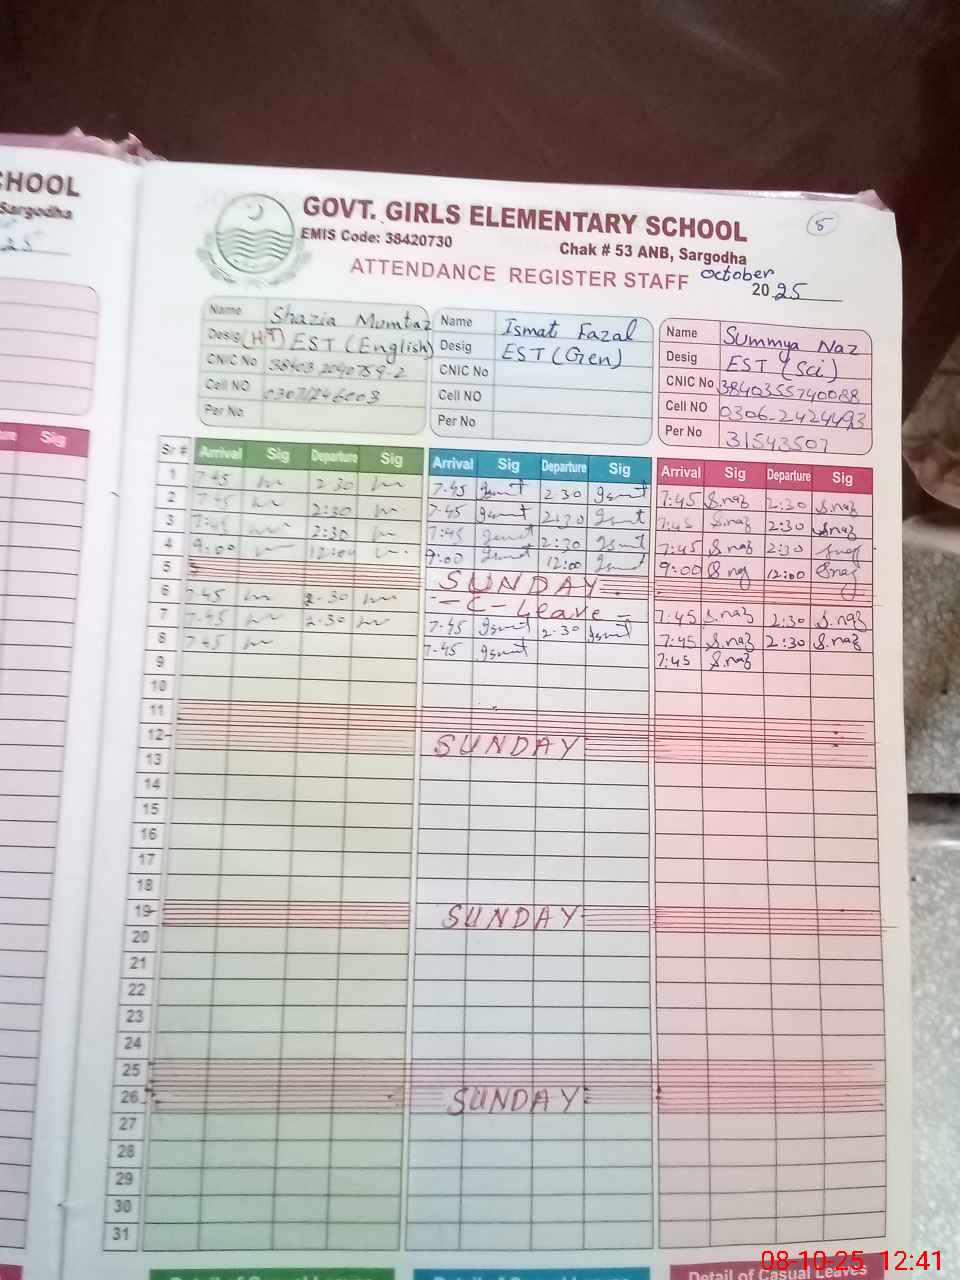 CHOOL
Sargodha
25
ure Sig
5
GOVT. GIRLS ELEMENTARY SCHOOL
EMIS Code: 38420730
Chak # 53 ANB, Sargodha
ATTENDANCE REGISTER STAFF October 2025
Name Shazia Momtaz
Desig (HT) EST (English)
CNIC No
Cell NO
Per No
Name Ismat Fazal
Desig EST (Gen)
CNIC No
Cell NO
Per No
Name Summya Naz
Desig EST (Sci)
CNIC No 3840355740088
Cell NO 0306-2424493
Per No 31543507
Sr # Arrival Sig Departure Sig Arrival Sig Departure Sig Arrival Sig Departure Sig
1 7-45 2-30 7-45 Ismt 2-30 Ismt 7:45 S.naz 2:30 S.naz
2 7-45 2:30 7-45 Ismt 2:30 Ismt 7:45 S.naz 2:30 S.naz
3 7-45 2:30 7-45 Ismt 2:30 Ismt 7:45 S.naz 2:30 S.naz
4 9:00 12:00 9:00 Ismt 12:00 Ismt 9:00 S.naz 12:00 S.naz
5 SUNDAY
6 7-45 2-30 - C - Leave - 7:45 S.naz 2:30 S.naz
7 7-45 2-30 7-45 Ismt 2-30 Ismt 7:45 S.naz 2:30 S.naz
8 7-45 7-45 Ismt 7:45 S.naz
9
10
11
12 SUNDAY
13
14
15
16
17
18
19 SUNDAY
20
21
22
23
24
25
26 SUNDAY
27
28
29
30
31
Detail of Casual Leaves
Detail of Casual Leaves
Detail of Casual Leaves
08-10-25 12:41